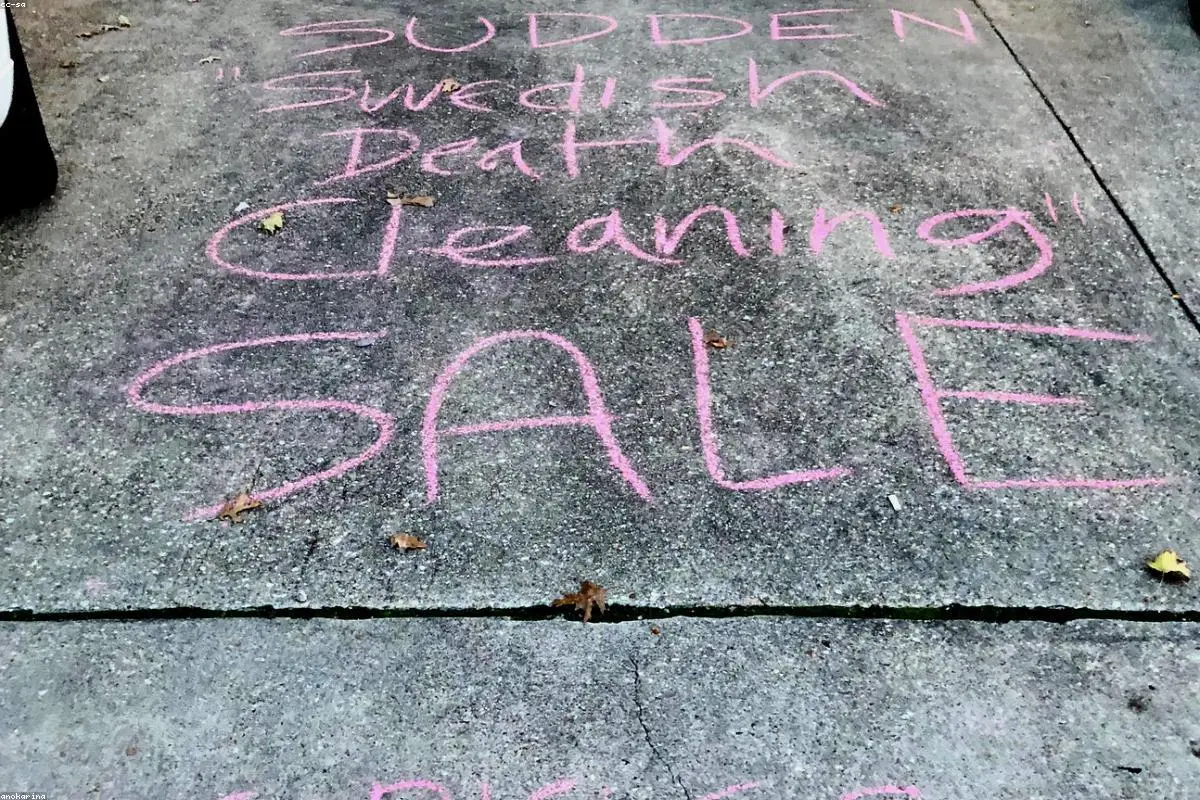 cc-sa
SUDDEN
"Swedish
Death
Cleaning"
SALE
anokarina